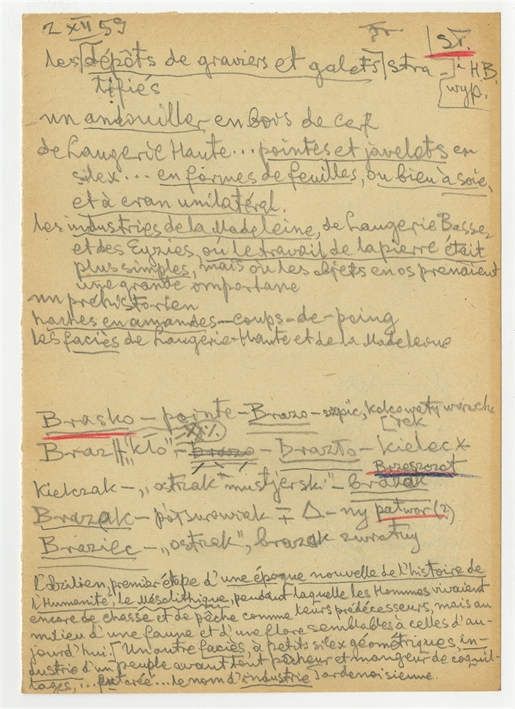 2 XII 59
Sł.
les dépôts de graviers et galets stra-
HB.
tifiés
wyp.
un andouiller en bois de cerf
de Laugerie Haute... pointes et javelets en
silex... en formes de feuilles, ou bien à soie,
et à cran unilatéral.
les industries de la Madeleine, de Laugerie Basse,
et des Eyzies, où le travail de la pierre était
plus simples, mais où les objets en os prenaient
une grande importane
un préhistorien
haches en amandes - coups-de-poing
les faciès de Laugerie-Haute et de la Madeleine
Brasko - pointe - Brazo - szpic, kolcowaty wierzcho
[rek
Braz || "kło" - brazło - kielec
Brzeszczot
Kielczak - „ostrzak mustjerski" - brazak
Brazak - półsurowiak ∓ Δ-ny patwor (?)
Braziec - „ostrzak", brazak zwrotny
L'azilien, premier étape d'une époque nouvelle de l'histoire de
l'Humanité, le Mésolithique, pendant laquelle les Hommes vivaient
encore de chasse et de pêche comme leurs prédécesseurs, mais au
milieu d'une faune et d'une flore semblables à celles d'au-
jourd'hui. [Un autre faciès, à petits silex géométriques, in-
dustrie d'un peuple avant tout pêcheur et mangeur de coquil-
lages, ... est créé... le nom d'industrie Tardenoisienne.